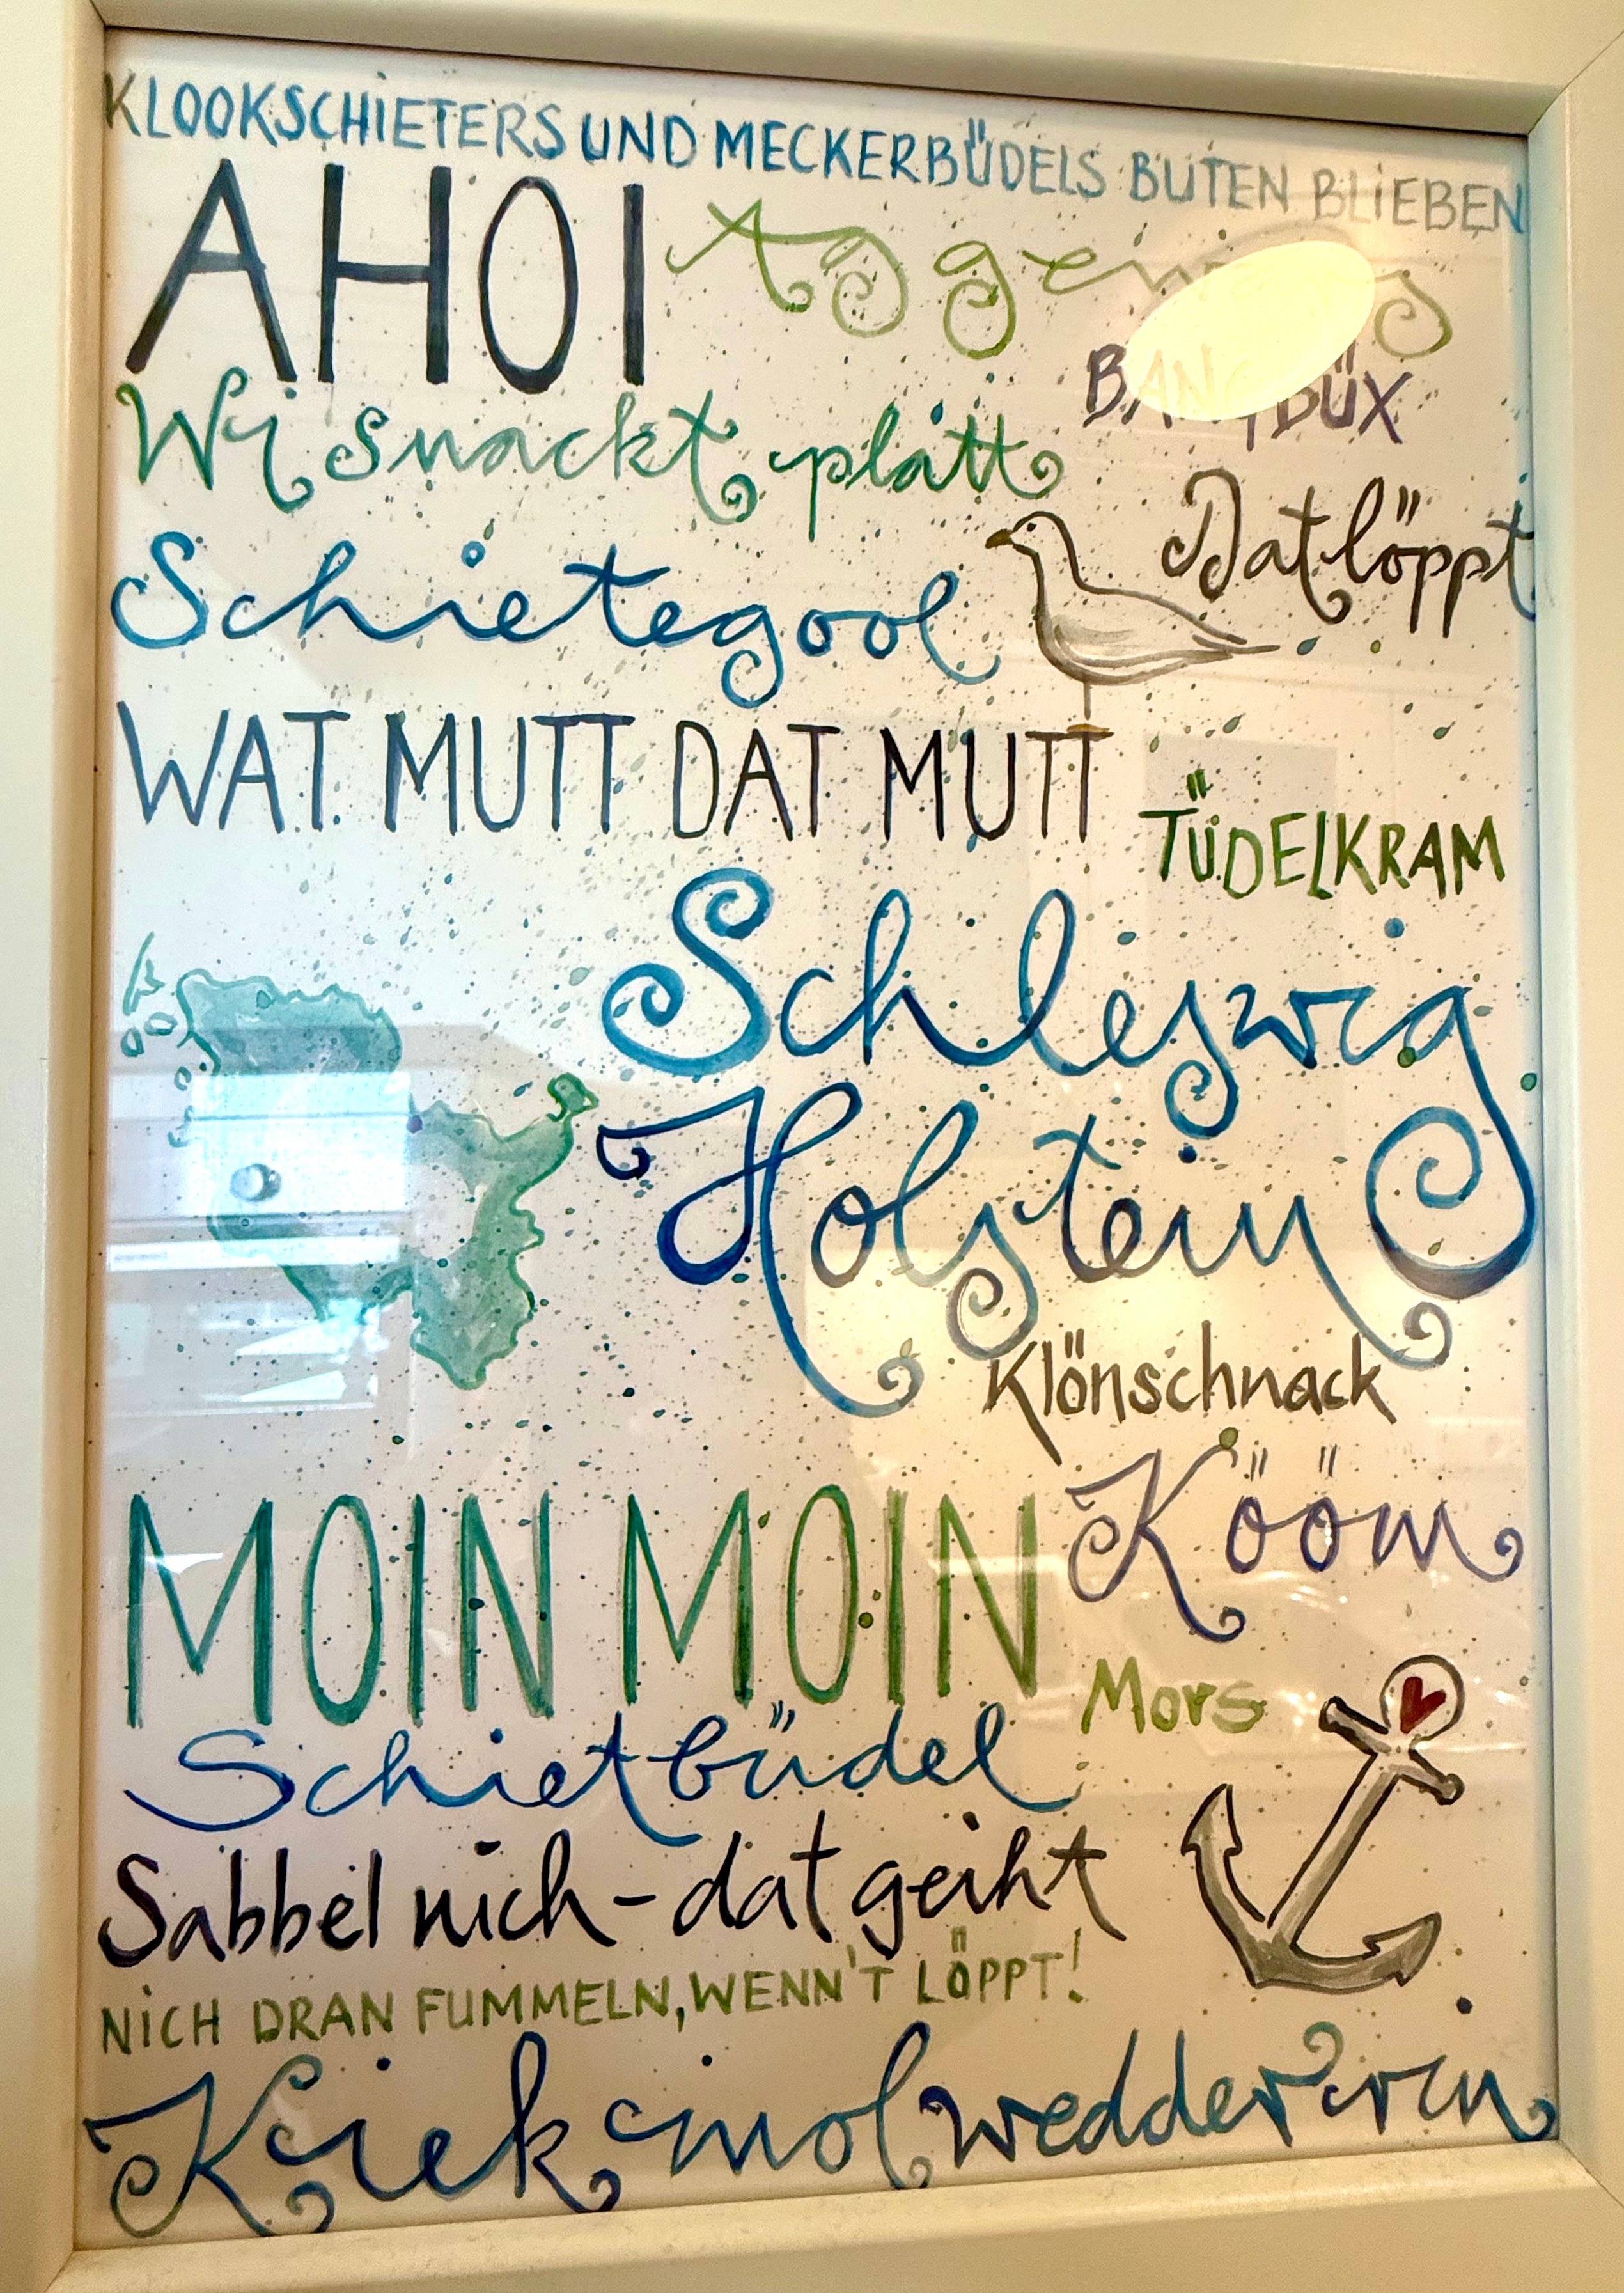 KLOOKSCHIETERS UND MECKERBÜDELS BUTEN BLIEBEN
AHOI
Wi snackt platt
Dat löppt
Schietegool
WAT MUTT DAT MUTT
TÜDELKRAM
Schleswig
Holstein
Klönschnack
Kööm
MOIN MOIN
Mors
Schietbüdel
Sabbel nich - dat geiht
NICH DRAN FUMMELN, WENN'T LÖPPT!
Kiek mol wedder rin